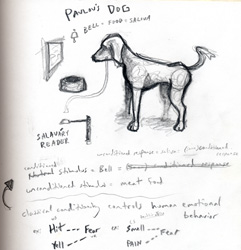 PAVLOV'S DOG
BELL = FOOD = SALIVA
SALAVARY
READER
unconditioned response = saliva
conditioned
stimulus = Bell = conditioned response
unconditioned stimulus = meat food
classical conditioning controls human emotional
behavior
ex: Hit --- Fear
Yell ---
or: Small --- Fear
PAIN ---